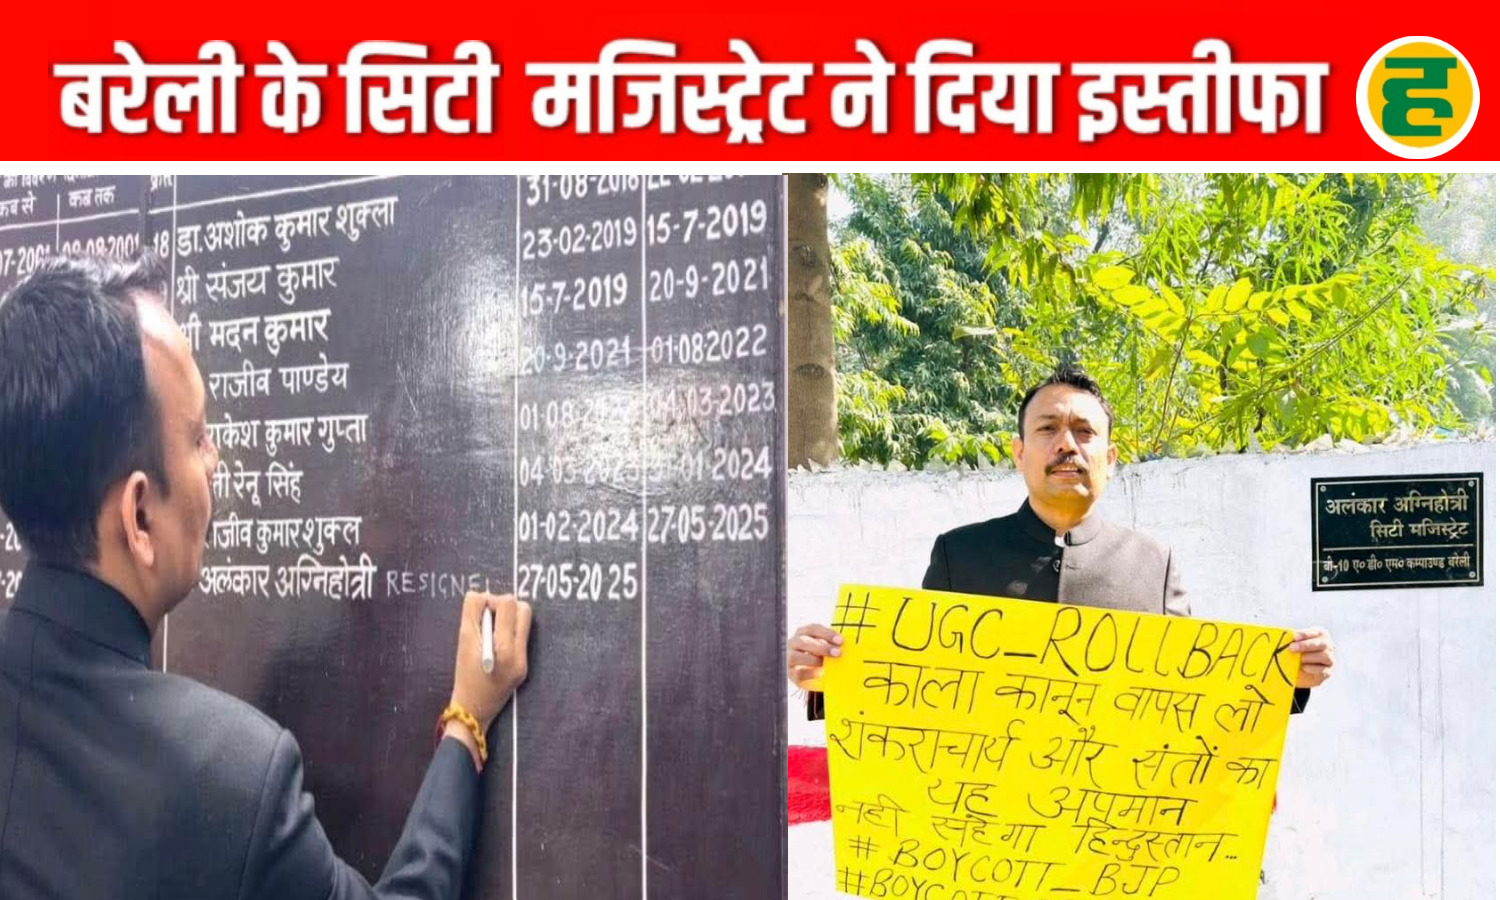 बरेली के सिटी मजिस्ट्रेट ने दिया इस्तीफा
ह
कब से कब तक
31-08-2018
18 डा. अशोक कुमार शुक्ला 23-02-2019 15-7-2019
श्री संजय कुमार 15-7-2019 20-9-2021
श्री मदन कुमार 20-9-2021 01-08-2022
राजीव पाण्डेय 01-08-2022 04-03-2023
राकेश कुमार गुप्ता 04-03-2023 31-01-2024
रेनू सिंह 01-02-2024 27-05-2025
राजीव कुमार शुक्ल
अलंकार अग्निहोत्री RESIGNE 27-05-2025
अलंकार अग्निहोत्री
सिटी मजिस्ट्रेट
बी-10 ए० डी० एम० कम्पाउण्ड बरेली
#UGC_ROLLBACK
काला कानून वापस लो
शंकराचार्य और संतों का
यह अपमान
नहीं सहेगा हिन्दुस्तान...
#BOYCOTT_BJP
#BOYCOTT